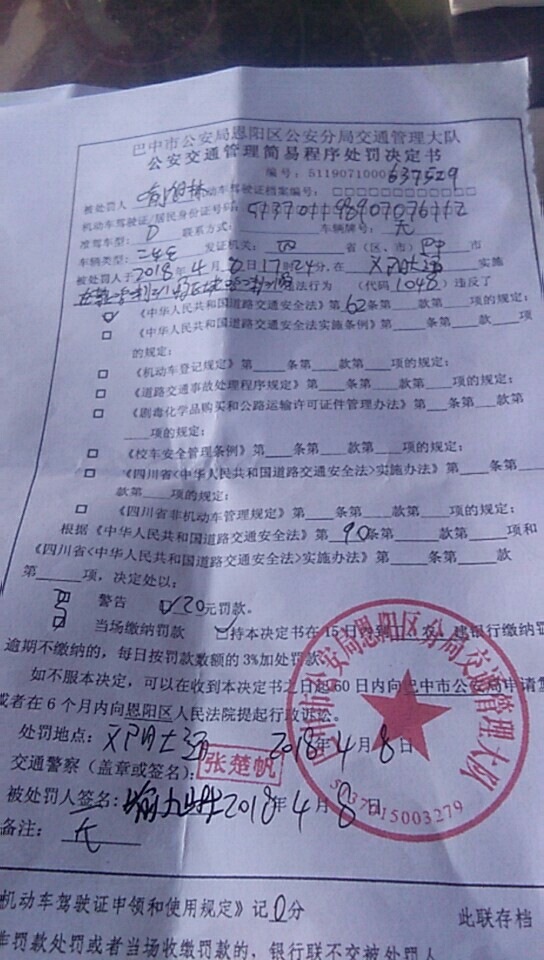 巴中市公安局恩阳区公安分局交通管理大队
公安交通管理简易程序处罚决定书
编号：5119071000637529
被处罚人 机动车驾驶证档案编号：□□□□□□□□□□□□
机动车驾驶证/居民身份证号码：
准驾车型： D 联系方式： 车辆牌号： 无
车辆类型： 发证机关： 四 省（区、市） 巴中 市
被处罚人于2018年4月8日17时24分，在 实施
违法行为 （代码1048）违反了
☑ 《中华人民共和国道路交通安全法》第62条第 款第 项的规定；
□ 《中华人民共和国道路交通安全法实施条例》第 条第 款第 项
的规定；
□ 《机动车登记规定》第 条第 款第 项的规定；
□ 《道路交通事故处理程序规定》第 条第 款第 项的规定；
□ 《剧毒化学品购买和公路运输许可证件管理办法》第 条第 款第
项的规定；
□ 《校车安全管理条例》第 条第 款第 项的规定；
□ 《四川省<中华人民共和国道路交通安全法>实施办法》第 条第
款第 项的规定；
□ 《四川省非机动车管理规定》第 条第 款第 项的规定；
根据《中华人民共和国道路交通安全法》第90条第 款第 项和
《四川省<中华人民共和国道路交通安全法>实施办法》第 条第 款
第 项，决定处以：
□ 警告 ☑20元罚款。
□ 当场缴纳罚款 ☑持本决定书在15日内到 农 建银行缴纳罚
逾期不缴纳的，每日按罚款数额的3%加处罚款
如不服本决定，可以在收到本决定书之日起60日内向巴中市公安局申请复
或者在6个月内向恩阳区人民法院提起行政诉讼。
处罚地点： 2018年4月8日
交通警察（盖章或签名）： 张楚帆
被处罚人签名： 2018年4月8日
备注： 无
巴中市公安局恩阳区分局交通管理大队
5037015003279
机动车驾驶证申领和使用规定》记0分
此联存档
车罚款处罚或者当场收缴罚款的，银行联不交被处罚人